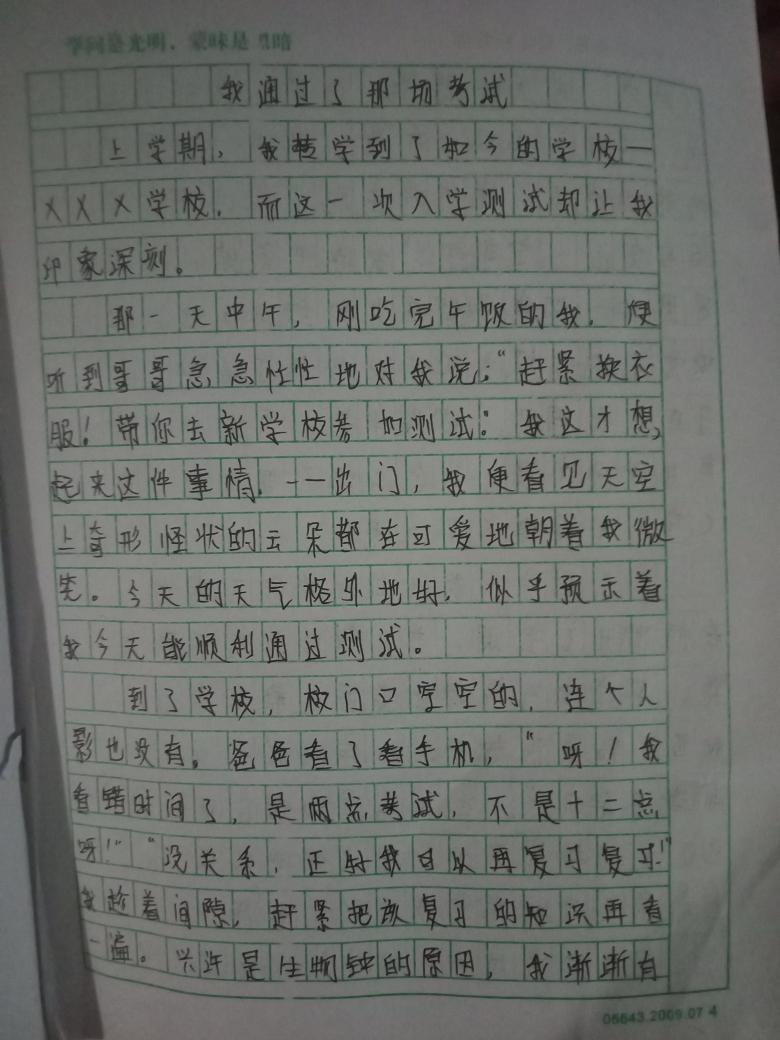 学问是光明，蒙昧是黑暗
我通过了那场考试
上学期，我转学到了如今的学校—
XXX学校，而这一次入学测试却让我
印象深刻。
那一天中午，刚吃完午饭的我，便
听到哥哥急急忙忙地对我说：“赶紧换衣
服！带你去新学校参加测试！”我这才想
起来这件事情。一出门，我便看见天空
上奇形怪状的云朵都在可爱地朝着我微
笑。今天的天气格外地好，似乎预示着
我今天能顺利通过测试。
到了学校，校门口空空的，连个人
影也没有。爸爸看了看手机，“呀！我
看错时间了，是两点考试，不是十二点
呀！”“没关系，正好我可以再复习复习！”
我趁着间隙，赶紧把该复习的知识再看
一遍。兴许是生物钟的原因，我渐渐有
06643.2009.07 4